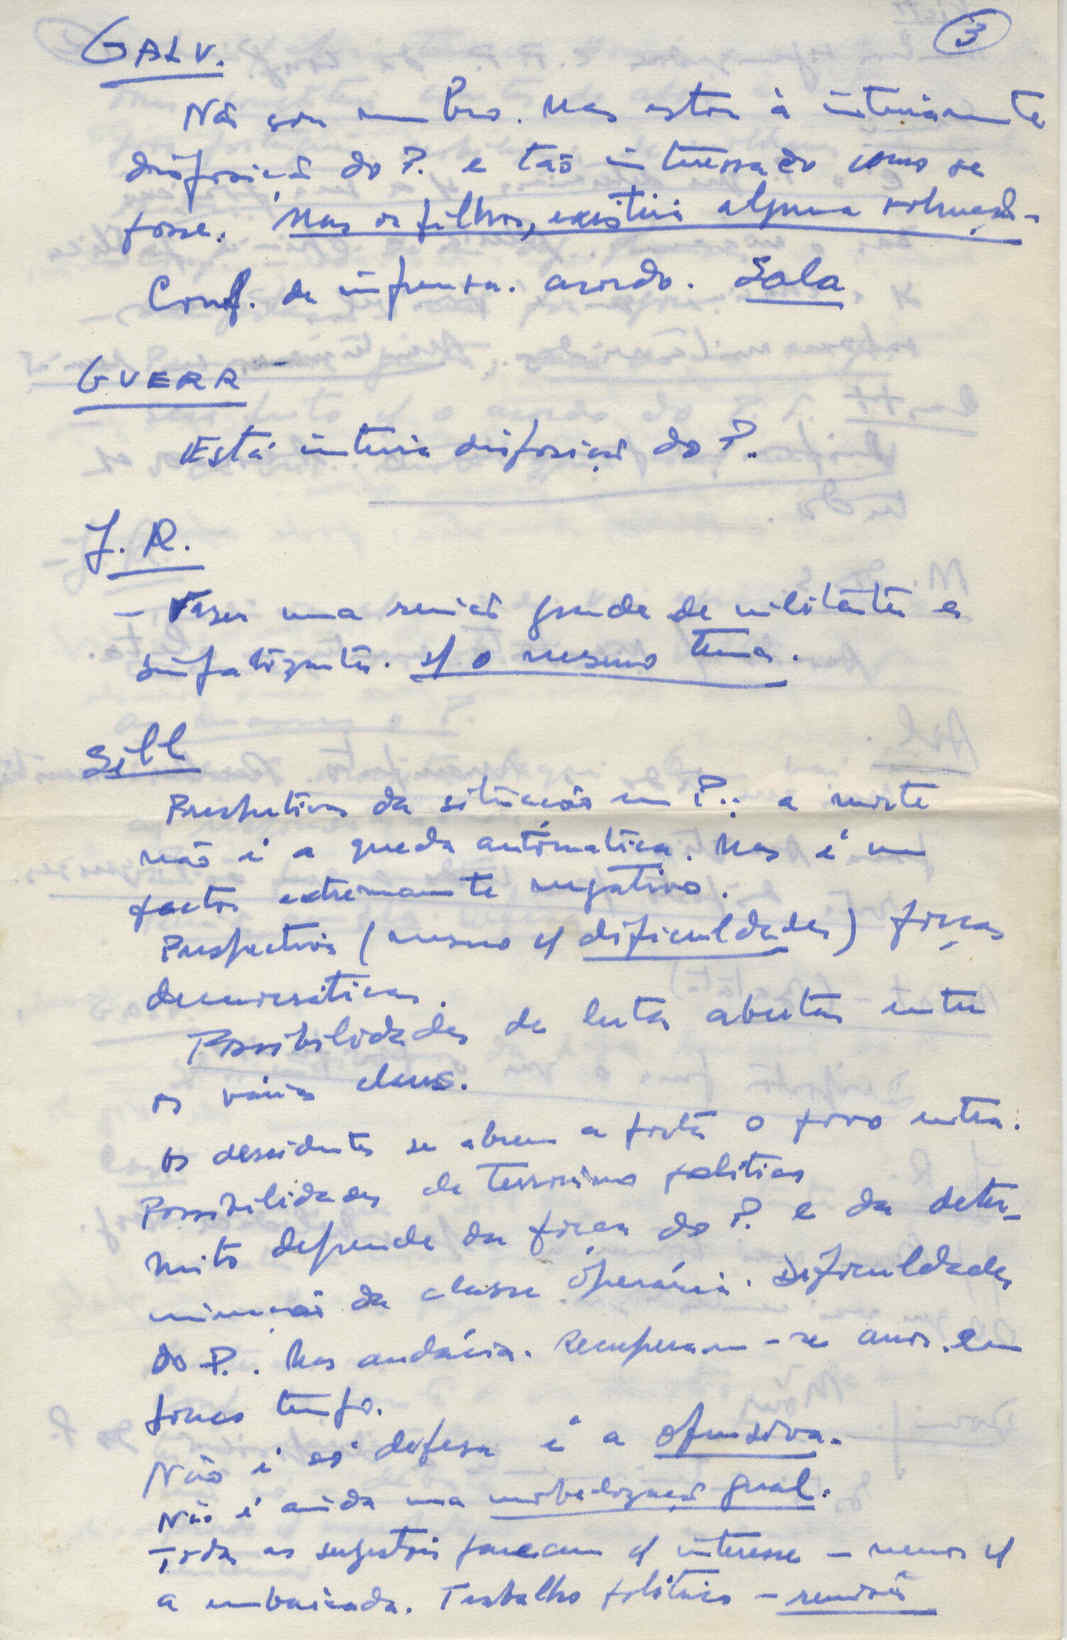 3
GALV.
Não sou membro. Mas estou à inteiramente
disposição do P. e tão interessado como se
fosse. Mas os filhos, existirá alguma
Conf. de imprensa. acordo. Sala
GUERR
Está inteira disposição do P.
J. R.
- Fazer uma reunião grande de militantes e
simpatizantes. s/ o mesmo tema.
Sill
Perspectivas da situação em P.: a morte
não é a queda automática. Mas é um
factor extremamente negativo.
Perspectiva (mesmo c/ dificuldades) forças
democráticas.
Possibilidades de lutas abertas entre
os vários clans.
os dissidentes se abrem a porta o povo entra.
Possibilidades de terrorismo político
Muito depende da força do P. e da deter-
minação da classe operária. Dificuldades
do P. Mas audácia. Recuperam-se anos em
pouco tempo.
Não é só defesa é a ofensiva.
Não é ainda uma mobilização geral.
Todas as sugestões parecem c/ interesse - menos c/
a embaixada. Trabalho político - reunião